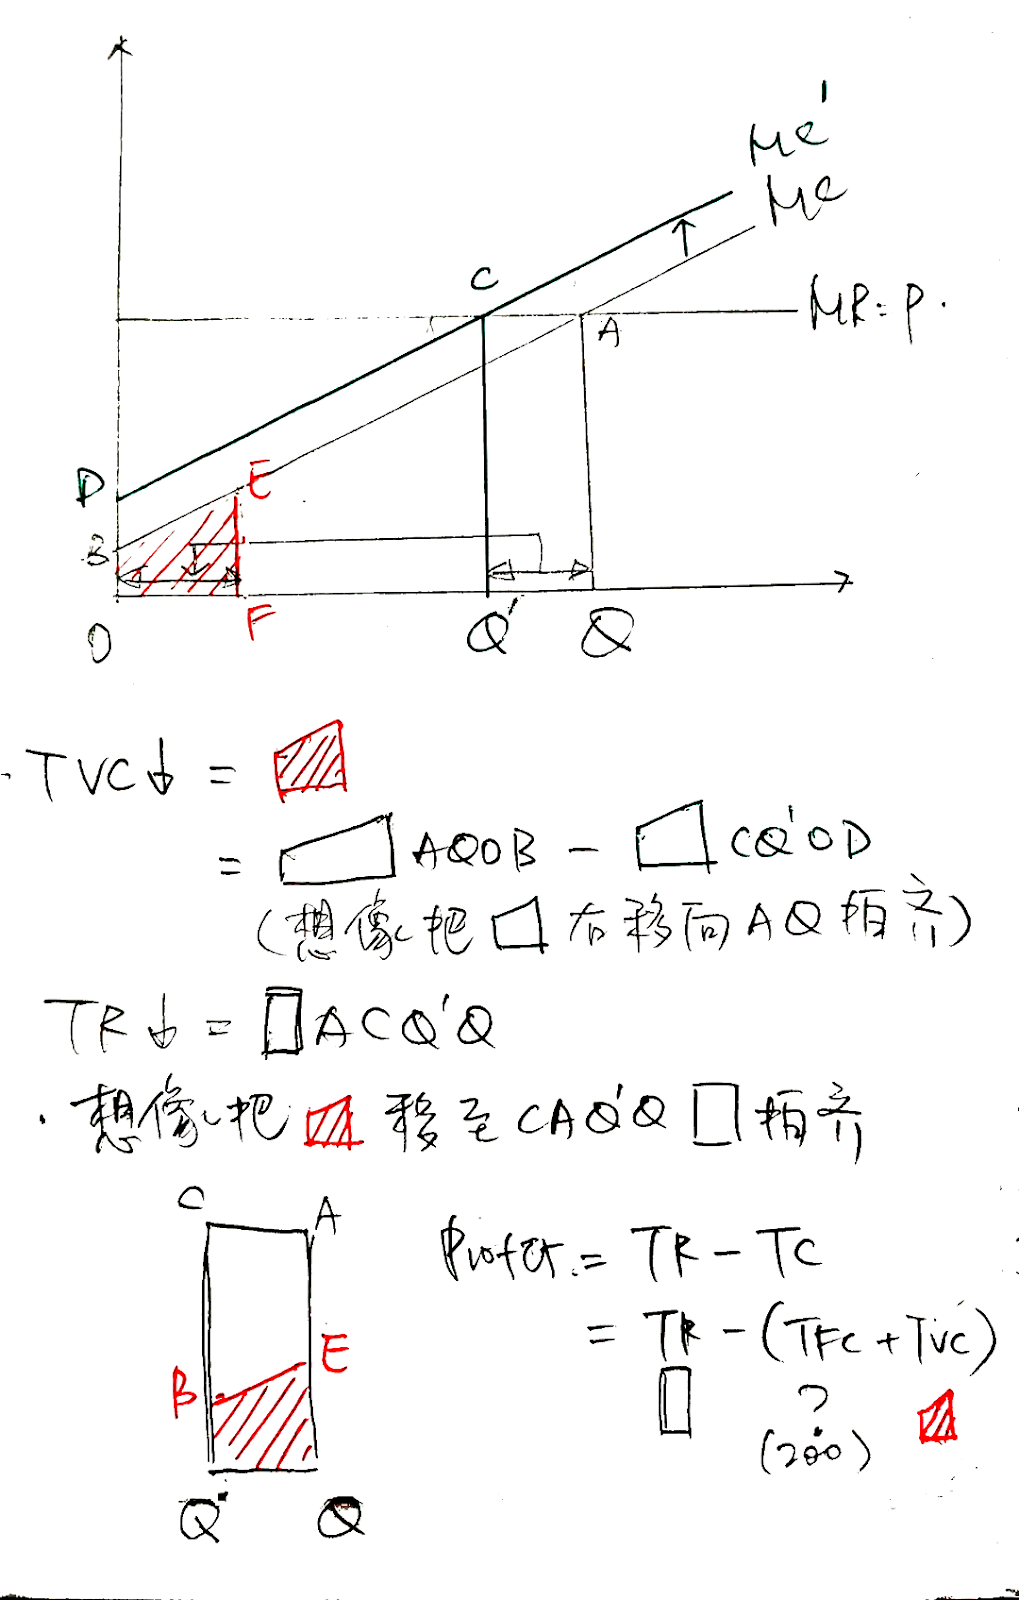 MC'
MC
C
A
MR = P.
D
E
B
O
F
Q'
Q
. TVC↓ =
= AQOB - CQ'OD
(想像把 右移向AQ拍齐)
TR↓ = ACQ'Q
. 想像把 移至 CAQ'Q 拍齐
C
A
Profit = TR - TC
E
= TR - (TFC + TVC)
B
?
(200)
Q'
Q